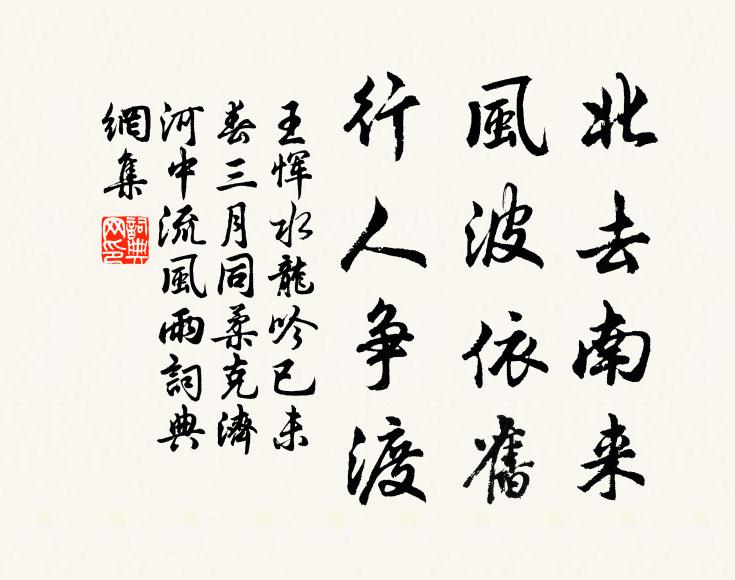 北去南来
風波依舊
行人争渡
王惲水龍吟己未
春三月同柔克濟
河中流風雨詞典
網集
詞典网印